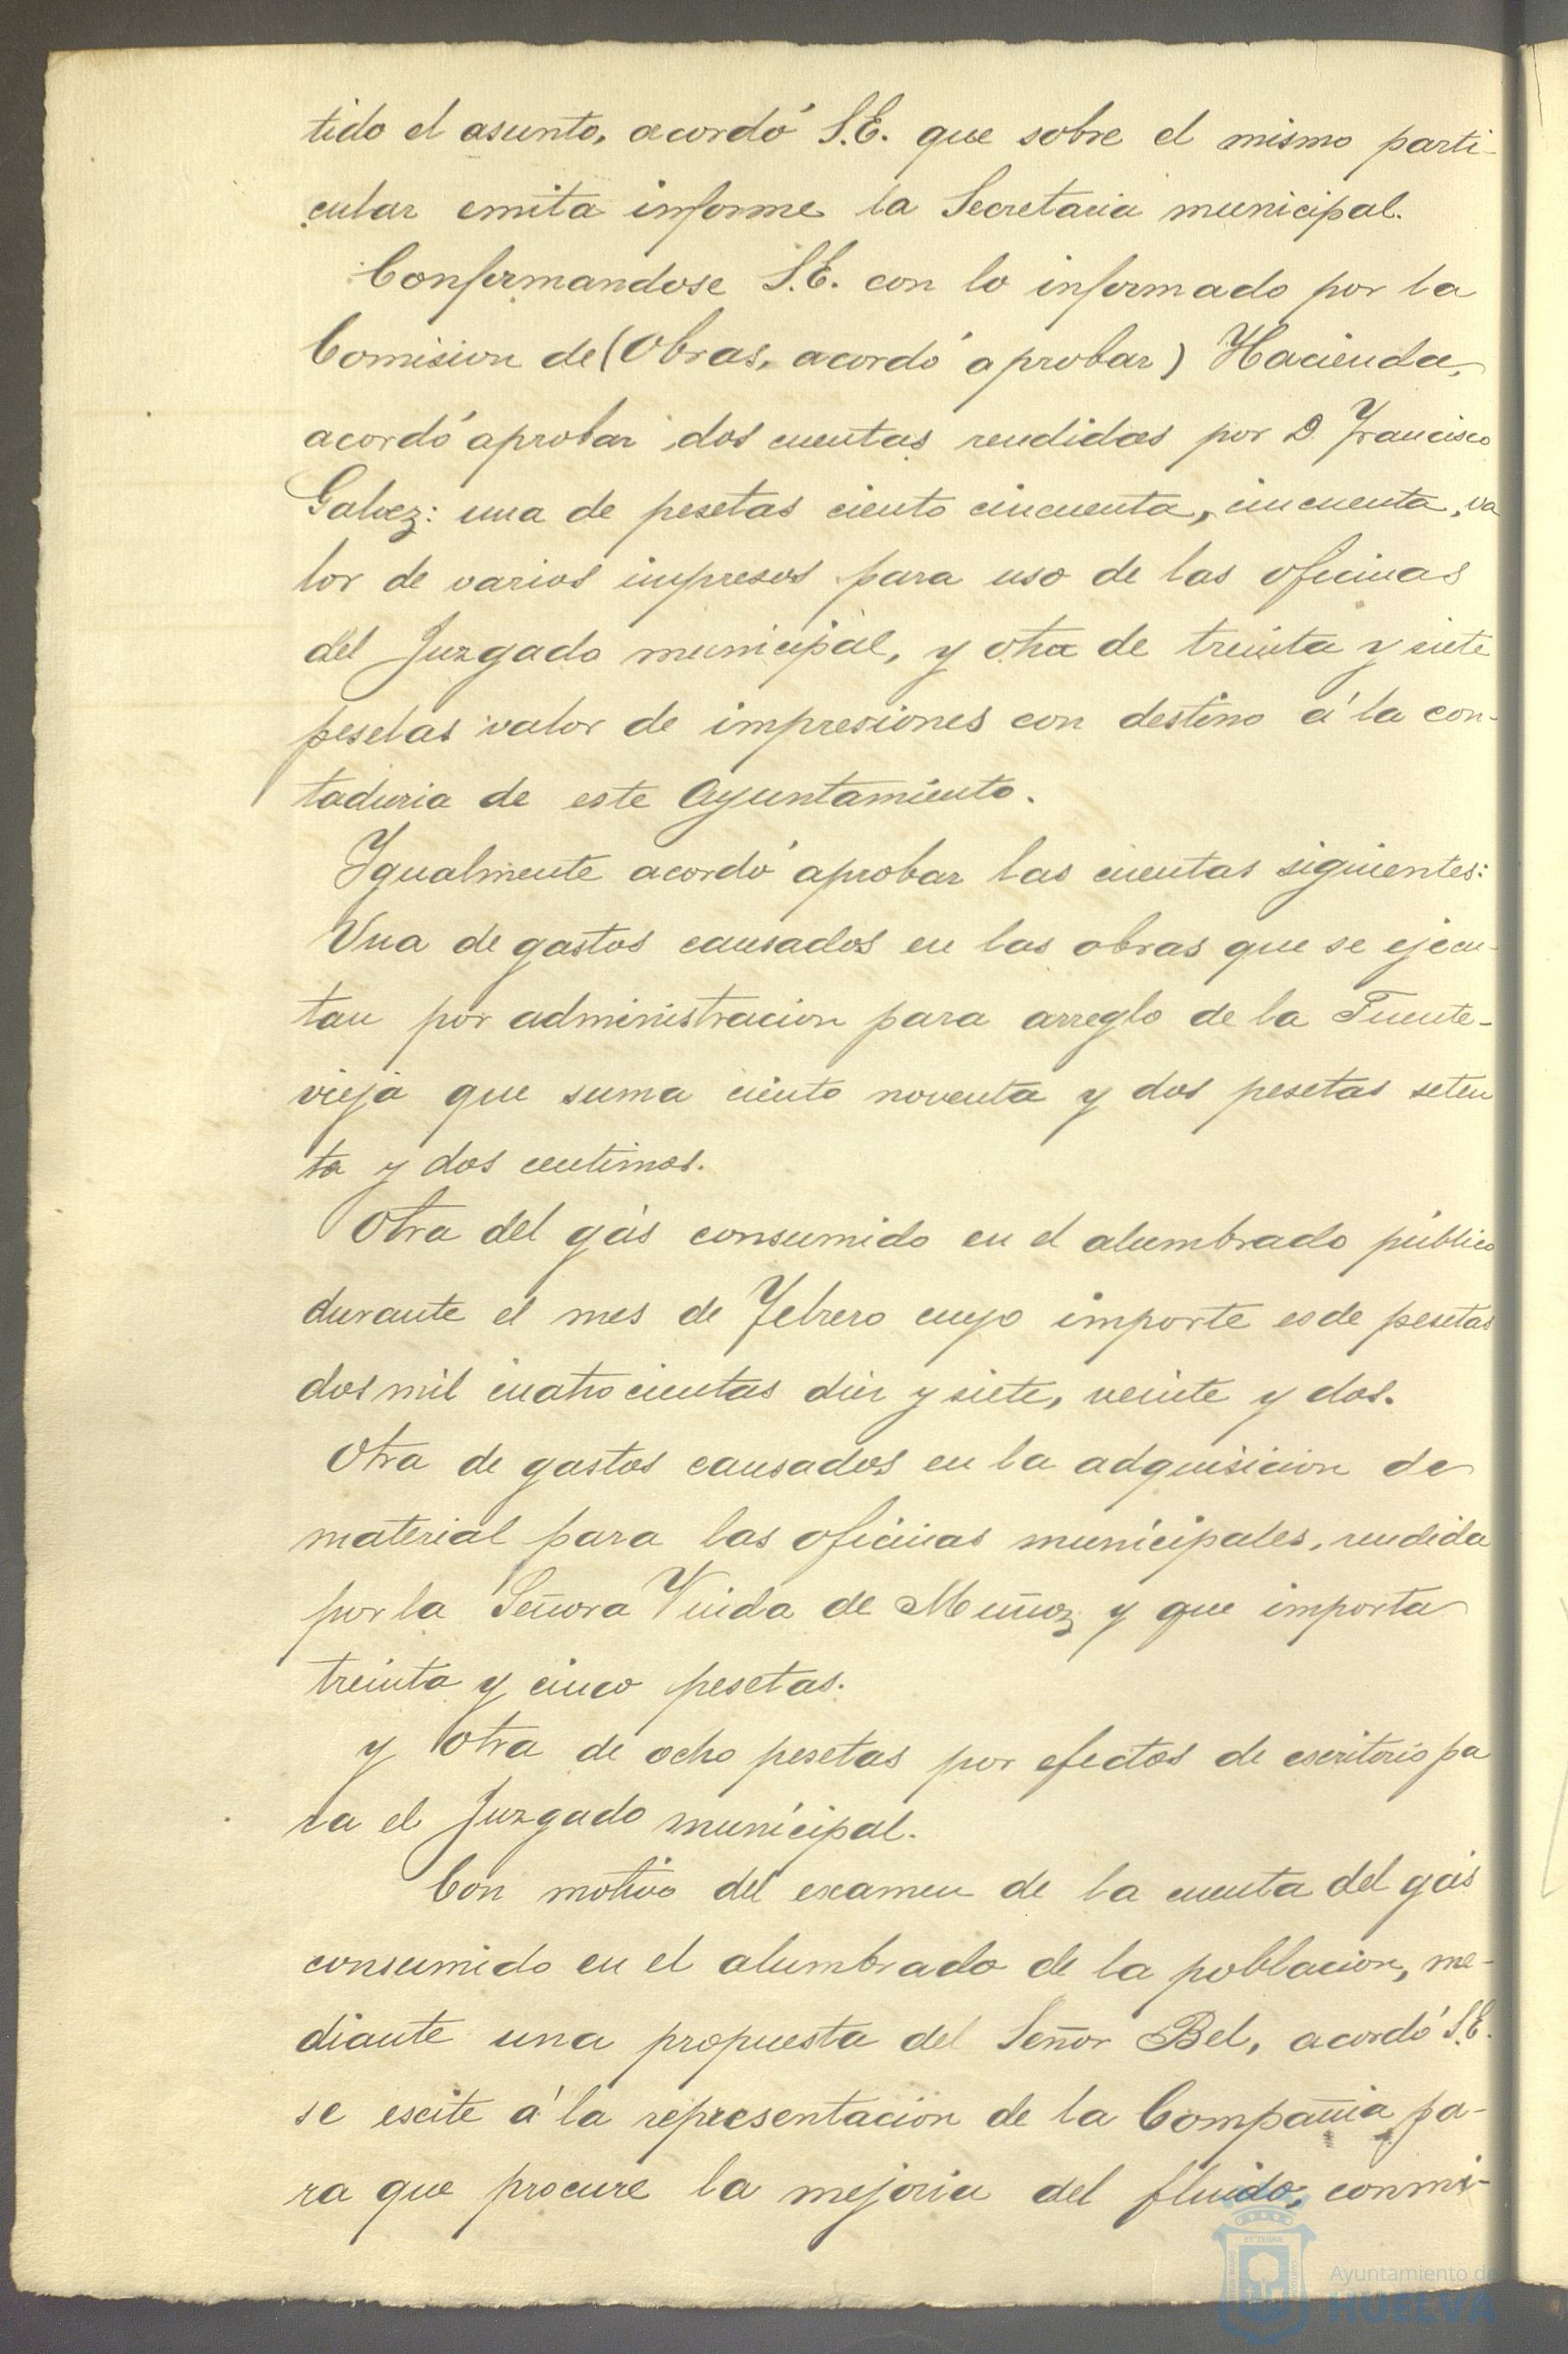 tido el asunto, acordó S.E. que sobre el mismo parti-
cular emita informe la Secretaria municipal.
Confirmandose S.E. con lo informado por la
Comision de (Obras, acordó aprobar) Hacienda,
acordó aprobar dos cuentas rendidas por D Francisco
Galvez: una de pesetas ciento cincuenta, cincuenta, va
lor de varios impresos para uso de las oficinas
del Juzgado municipal, y otra de treinta y siete
pesetas valor de impresiones con destino á la con-
taduria de este Ayuntamiento.
Igualmente acordó aprobar las cuentas siguientes:
Una de gastos causados en las obras que se ejecu-
tan por administracion para arreglo de la Fuente-
vieja que suma ciento noventa y dos pesetas seten
ta y dos centimos.
Otra del gás consumido en el alumbrado público
durante el mes de Febrero cuyo importe es de pesetas
dos mil cuatrocientas diez y siete, veinte y dos.
Otra de gastos causados en la adquisicion de
material para las oficinas municipales, rendida
por la Señora Viuda de Muñoz y que importa
treinta y cinco pesetas.
y otra de ocho pesetas por efectos de escritorio pa
ra el Juzgado municipal.
Con motivo del examen de la cuenta del gás
consumido en el alumbrado de la poblacion, me-
diante una propuesta del Señor Bel, acordó S.E.
se escite á la representacion de la Compañia pa-
ra que procure la mejoria del fluido, conmi-
Ayuntamiento de
HUELVA